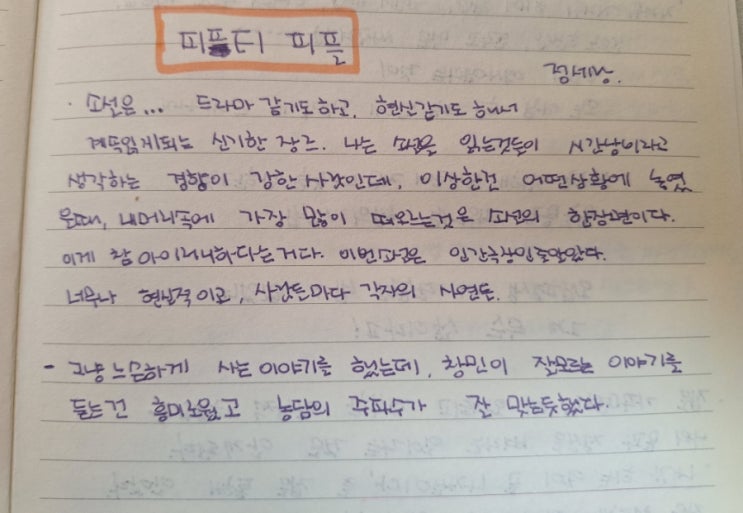 피프티 피플
정세랑.
· 소설은... 드라마 같기도하고, 현실같기도 해서
계속읽게되는 신기한 장르. 나는 소설을 읽는것들이 시간낭이라고
생각하는 경향이 강한 사람인데, 이상한건 어떤상황에 놓였
을때, 내머리속에 가장 많이 떠오르는것은 소설의 한장면이다.
이게 참 아이러니하다는거다. 이번소설은 인간극장인줄알았다.
너무나 현실적이고, 사람들마다 각자의 사연들.
- 그냥 느슨하게 사는이야기를 했는데, 창민이 잘모르는 이야기를
듣는건 흥미로웠고 농담의 주파수가 잘 맞는듯했다.